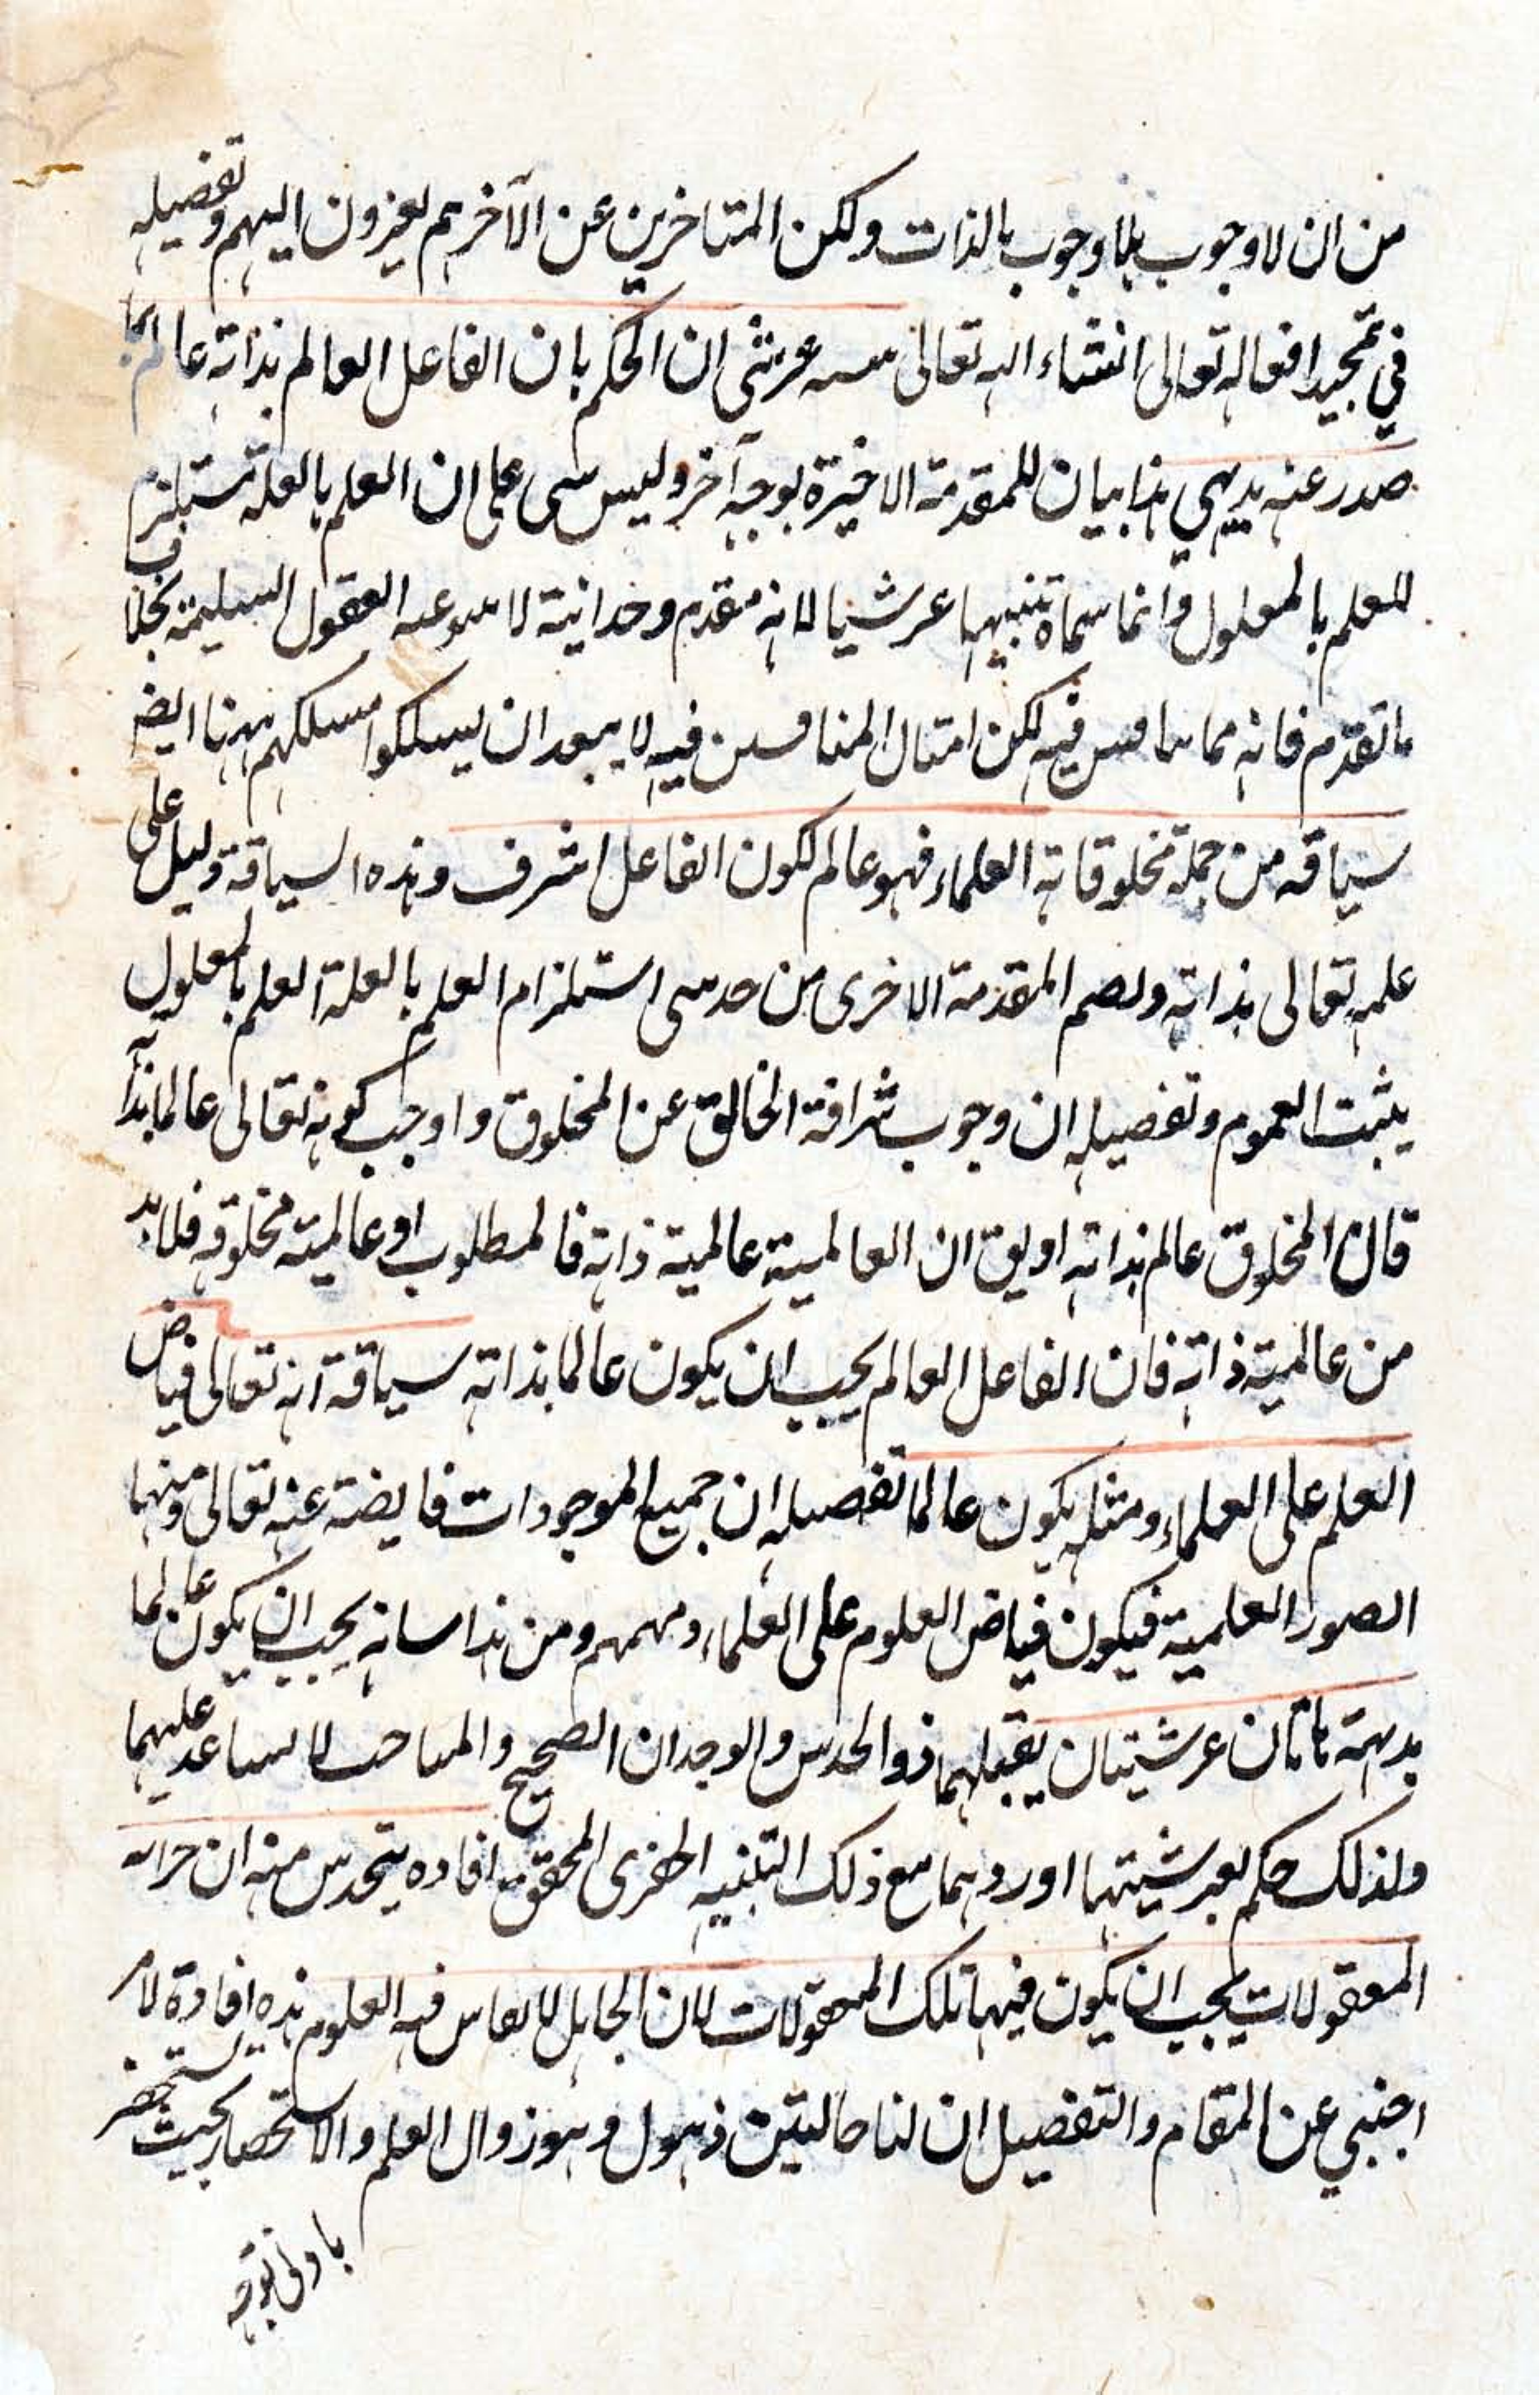 من ان لا وجوب بلا وجوب بالذات ولكن المتاخرين عن الآخرهم يعزون اليهم وتفصيله
في تمجيد افعاله تعالى انشاء الله تعالى عرشى ان الحكم بان الفاعل العالم بذاته عالم بما
صدر عنه بديهي هذا بيان للمقدمة الاخيرة بوجه آخر وليس على ان العلم بالعلة مستلزم
للعلم بالمعلول وانما سماه تنبيها عرشيا لانه مقدم وحدانية لا العقول السليمة بخلاف
ما تقدم فانه مما فيه لكن امثال المنافسين فيه لا يبعد ان يسلكوا مسلكهم ههنا ايضا
سياقه من جملة مخلوقاته العلماء فهو عالم لكون الفاعل اشرف وهذه السياقة دليل على
علمه تعالى بذاته ولضم المقدمة الاخرى من حدسى استلزام العلم بالعلة العلم بالمعلول
يثبت العموم وتفصيله ان وجوب شرافة الخالق عن المخلوق واوجب كونه تعالى عالما بذاته
قال المخلوق عالم بذاته اويق ان العالمية عالمية ذاته فالمطلوب او عالمية مخلوقه فلابد
من عالمية ذاته فان الفاعل العالم يجب ان يكون عالما بذاته سياقة انه تعالى فياض
العلم على العلماء ومثله يكون عالما تفصيله ان جميع الموجودات فايضة عنه تعالى ومنها
الصور العلمية فيكون فياض العلوم على العلماء وملهمهم ومن هذا شانه يجب ان يكون عالما
بديهة هاتان عرشيتان يقبلهما ذو الحدس والوجدان الصحيح والمباحث لا تساعد عليهما
ولذلك حكم بعرشيتهما اوردهما مع ذلك التنبيه الخفرى المحقق افاده يتحدس منه ان خزانة
المعقولات يجب ان يكون فيها تلك المعقولات لان الجاهل لا فيه العلوم هذه افادة لامر
اجنبي عن المقام والتفصيل ان لنا حالتين ذهول وهو زوال العلم والاستحضار بحيث يستحضر
بادنى توجه